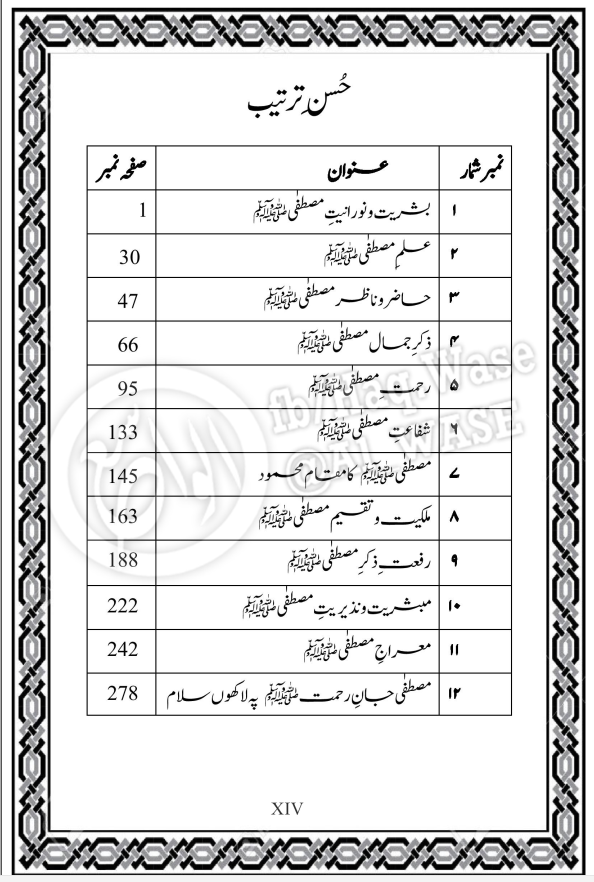 حُسنِ ترتیب
نمبر شمار عنوان صفحہ نمبر
۱ بشریت و نورانیتِ مصطفٰی ﷺ 1
۲ علمِ مصطفٰی ﷺ 30
۳ حاضر و ناظر مصطفٰی ﷺ 47
۴ ذکرِ جمالِ مصطفٰی ﷺ 66
۵ رحمتِ مصطفٰی ﷺ 95
۶ شفاعتِ مصطفٰی ﷺ 133
۷ مصطفٰی ﷺ کا مقام محمود 145
۸ ملکیت و تقسیم مصطفٰی ﷺ 163
۹ رفعتِ ذکرِ مصطفٰی ﷺ 188
۱۰ مبشریت و نذیریتِ مصطفٰی ﷺ 222
۱۱ معراجِ مصطفٰی ﷺ 242
۱۲ مصطفٰی جانِ رحمت ﷺ پہ لاکھوں سلام 278
fb/Haq Wase
XIV